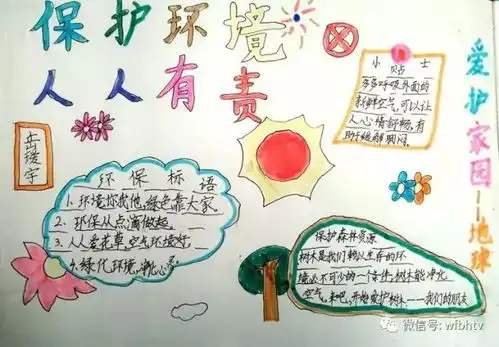 保护环境
人人有责
小贴士
多多呼吸外面的
新鲜空气,可以让
人心情舒畅,有
助于缓解烦闷。
爱护家园——地球
环保标语
1. 环境你我他,绿色靠大家。
2. 环保从点滴做起。
3. 人人爱花草,空气环境好。
4. 绿化环境,净化心灵
保护森林资源
树木是我们赖以生存的环
境必不可少的一个条件,树木能净化
空气。来吧,开始爱护树木——我们的朋友
微信号: wfbhtv